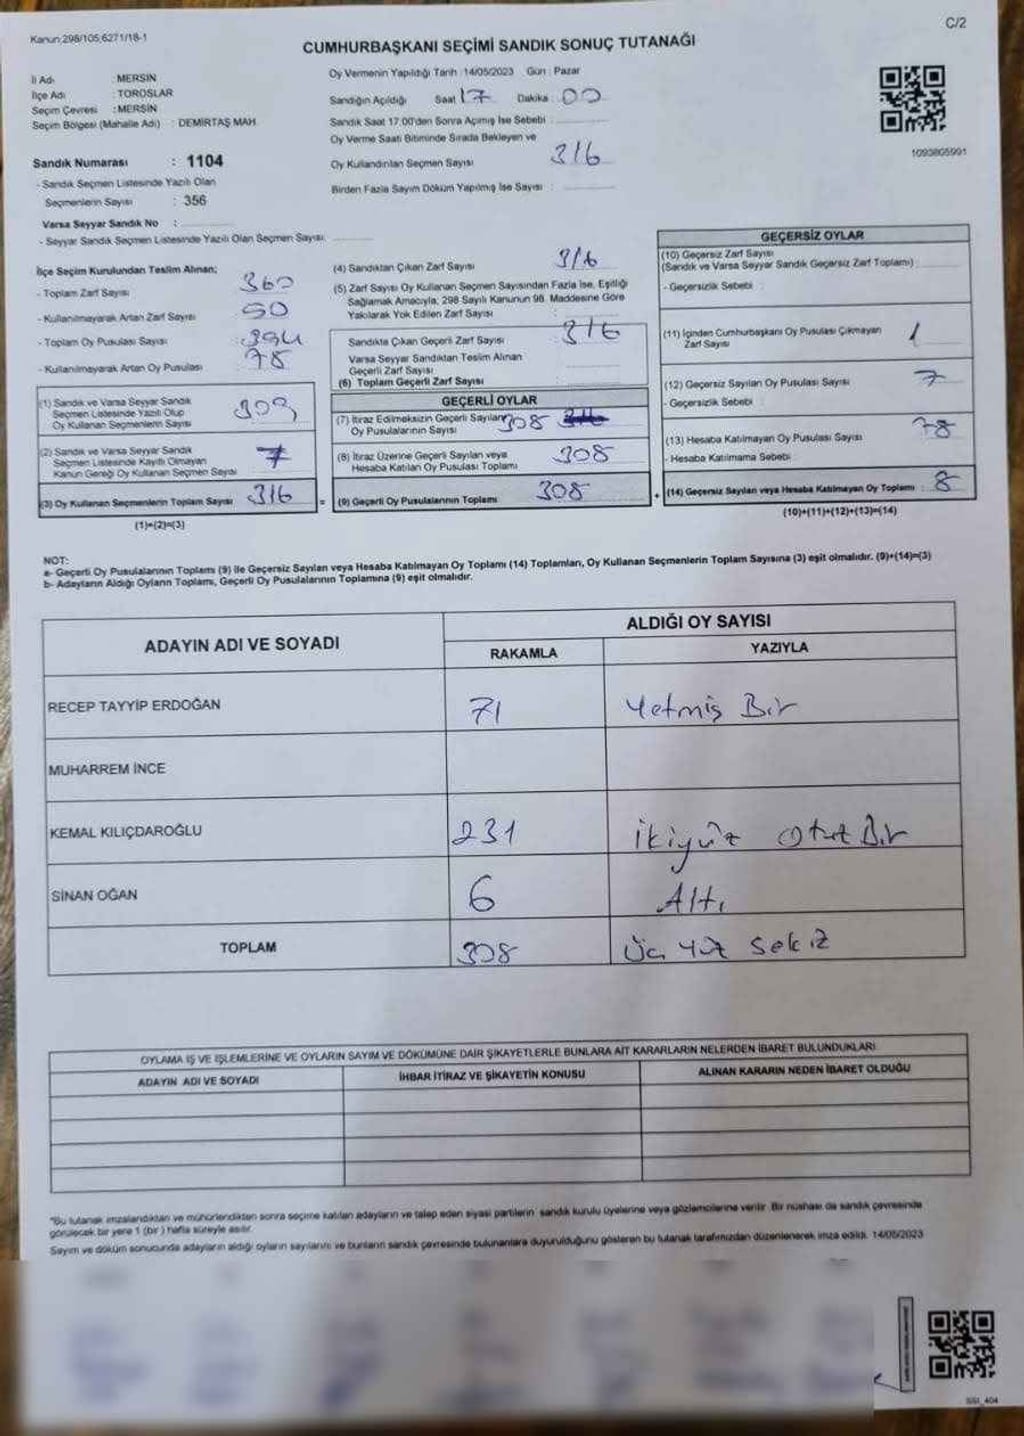 Kanun:298/105,6271/18-1
C/2
CUMHURBAŞKANI SEÇİMİ SANDIK SONUÇ TUTANAĞI
İl Adı : MERSİN
İlçe Adı : TOROSLAR
Seçim Çevresi : MERSİN
Seçim Bölgesi (Mahalle Adı) : DEMİRTAŞ MAH.
Oy Vermenin Yapıldığı Tarih :14/05/2023 Gün : Pazar
Sandığın Açıldığı Saat 17 Dakika : 00
Sandık Saat 17:00'den Sonra Açımış İse Sebebi :
Oy Verme Saati Bitiminde Sırada Bekleyen ve
Oy Kullandırılan Seçmen Sayısı 316
Birden Fazla Sayım Döküm Yapılmış İse Sayısı :
1093805991
Sandık Numarası : 1104
- Sandık Seçmen Listesinde Yazılı Olan
Seçmenlerin Sayısı : 356
Varsa Seyyar Sandık No :
- Seyyar Sandık Seçmen Listesinde Yazılı Olan Seçmen Sayısı:
İlçe Seçim Kurulundan Teslim Alınan;
- Toplam Zarf Sayısı 360
- Kullanılmayarak Artan Zarf Sayısı 50
- Toplam Oy Pusulası Sayısı 394
- Kullanılmayarak Artan Oy Pusulası 78
(1) Sandık ve Varsa Seyyar Sandık
Seçmen Listesinde Yazılı Olup
Oy Kullanan Seçmenlerin Sayısı 309
(2) Sandık ve Varsa Seyyar Sandık
Seçmen Listesinde Kayıtlı Olmayan
Kanun Gereği Oy Kullanan Seçmen Sayısı 7
(3) Oy Kullanan Seçmenlerin Toplam Sayısı 316
(1)+(2)=(3)
(4) Sandıktan Çıkan Zarf Sayısı 316
(5) Zarf Sayısı Oy Kullanan Seçmen Sayısından Fazla İse, Eşitliği
Sağlamak Amacıyla, 298 Sayılı Kanunun 98. Maddesine Göre
Yakılarak Yok Edilen Zarf Sayısı :
Sandıkta Çıkan Geçerli Zarf Sayısı 316
Varsa Seyyar Sandıktan Teslim Alınan
Geçerli Zarf Sayısı
(6) Toplam Geçerli Zarf Sayısı
GEÇERLİ OYLAR
(7) İtiraz Edilmeksizin Geçerli Sayılan 308
Oy Pusulalarının Sayısı
(8) İtiraz Üzerine Geçerli Sayılan veya 308
Hesaba Katılan Oy Pusulası Toplamı
= (9) Geçerli Oy Pusulalarının Toplamı 308
GEÇERSİZ OYLAR
(10) Geçersiz Zarf Sayısı
(Sandık ve Varsa Seyyar Sandık Geçersiz Zarf Toplamı)
- Geçersizlik Sebebi :
(11) İçinden Cumhurbaşkanı Oy Pusulası Çıkmayan 1
Zarf Sayısı
(12) Geçersiz Sayılan Oy Pusulası Sayısı 7
- Geçersizlik Sebebi :
(13) Hesaba Katılmayan Oy Pusulası Sayısı 78
- Hesaba Katılmama Sebebi :
+ (14) Geçersiz Sayılan veya Hesaba Katılmayan Oy Toplamı : 8
(10)+(11)+(12)+(13)=(14)
NOT:
a- Geçerli Oy Pusulalarının Toplamı (9) ile Geçersiz Sayılan veya Hesaba Katılmayan Oy Toplamı (14) Toplamları, Oy Kullanan Seçmenlerin Toplam Sayısına (3) eşit olmalıdır. (9)+(14)=(3)
b- Adayların Aldığı Oyların Toplamı, Geçerli Oy Pusulalarının Toplamına (9) eşit olmalıdır.
ADAYIN ADI VE SOYADI
ALDIĞI OY SAYISI
RAKAMLA YAZIYLA
RECEP TAYYİP ERDOĞAN 71 Yetmiş Bir
MUHARREM İNCE
KEMAL KILIÇDAROĞLU 231 İkiyüz Otut Bir
SİNAN OĞAN 6 Altı
TOPLAM 308 Üç Yüz Sekiz
OYLAMA İŞ VE İŞLEMLERİNE VE OYLARIN SAYIM VE DÖKÜMÜNE DAİR ŞİKAYETLERLE BUNLARA AİT KARARLARIN NELERDEN İBARET BULUNDUKLARI
ADAYIN ADI VE SOYADI İHBAR İTİRAZ VE ŞİKAYETİN KONUSU ALINAN KARARIN NEDEN İBARET OLDUĞU
"Bu tutanak imzalandıktan ve mühürlendikten sonra seçime katılan adayların ve talep eden siyasi partilerin sandık kurulu üyelerine veya gözlemcilerine verilir. Bir nüshası da sandık çevresinde
görülecek bir yere 1 (bir) hafta süreyle asılır.
Sayım ve döküm sonucunda adayların aldığı oyların sayılarını ve bunların sandık çevresinde bulunanlara duyurulduğunu gösteren bu tutanak tarafımızdan düzenlenerek imza edildi. 14/05/2023
SSI_404